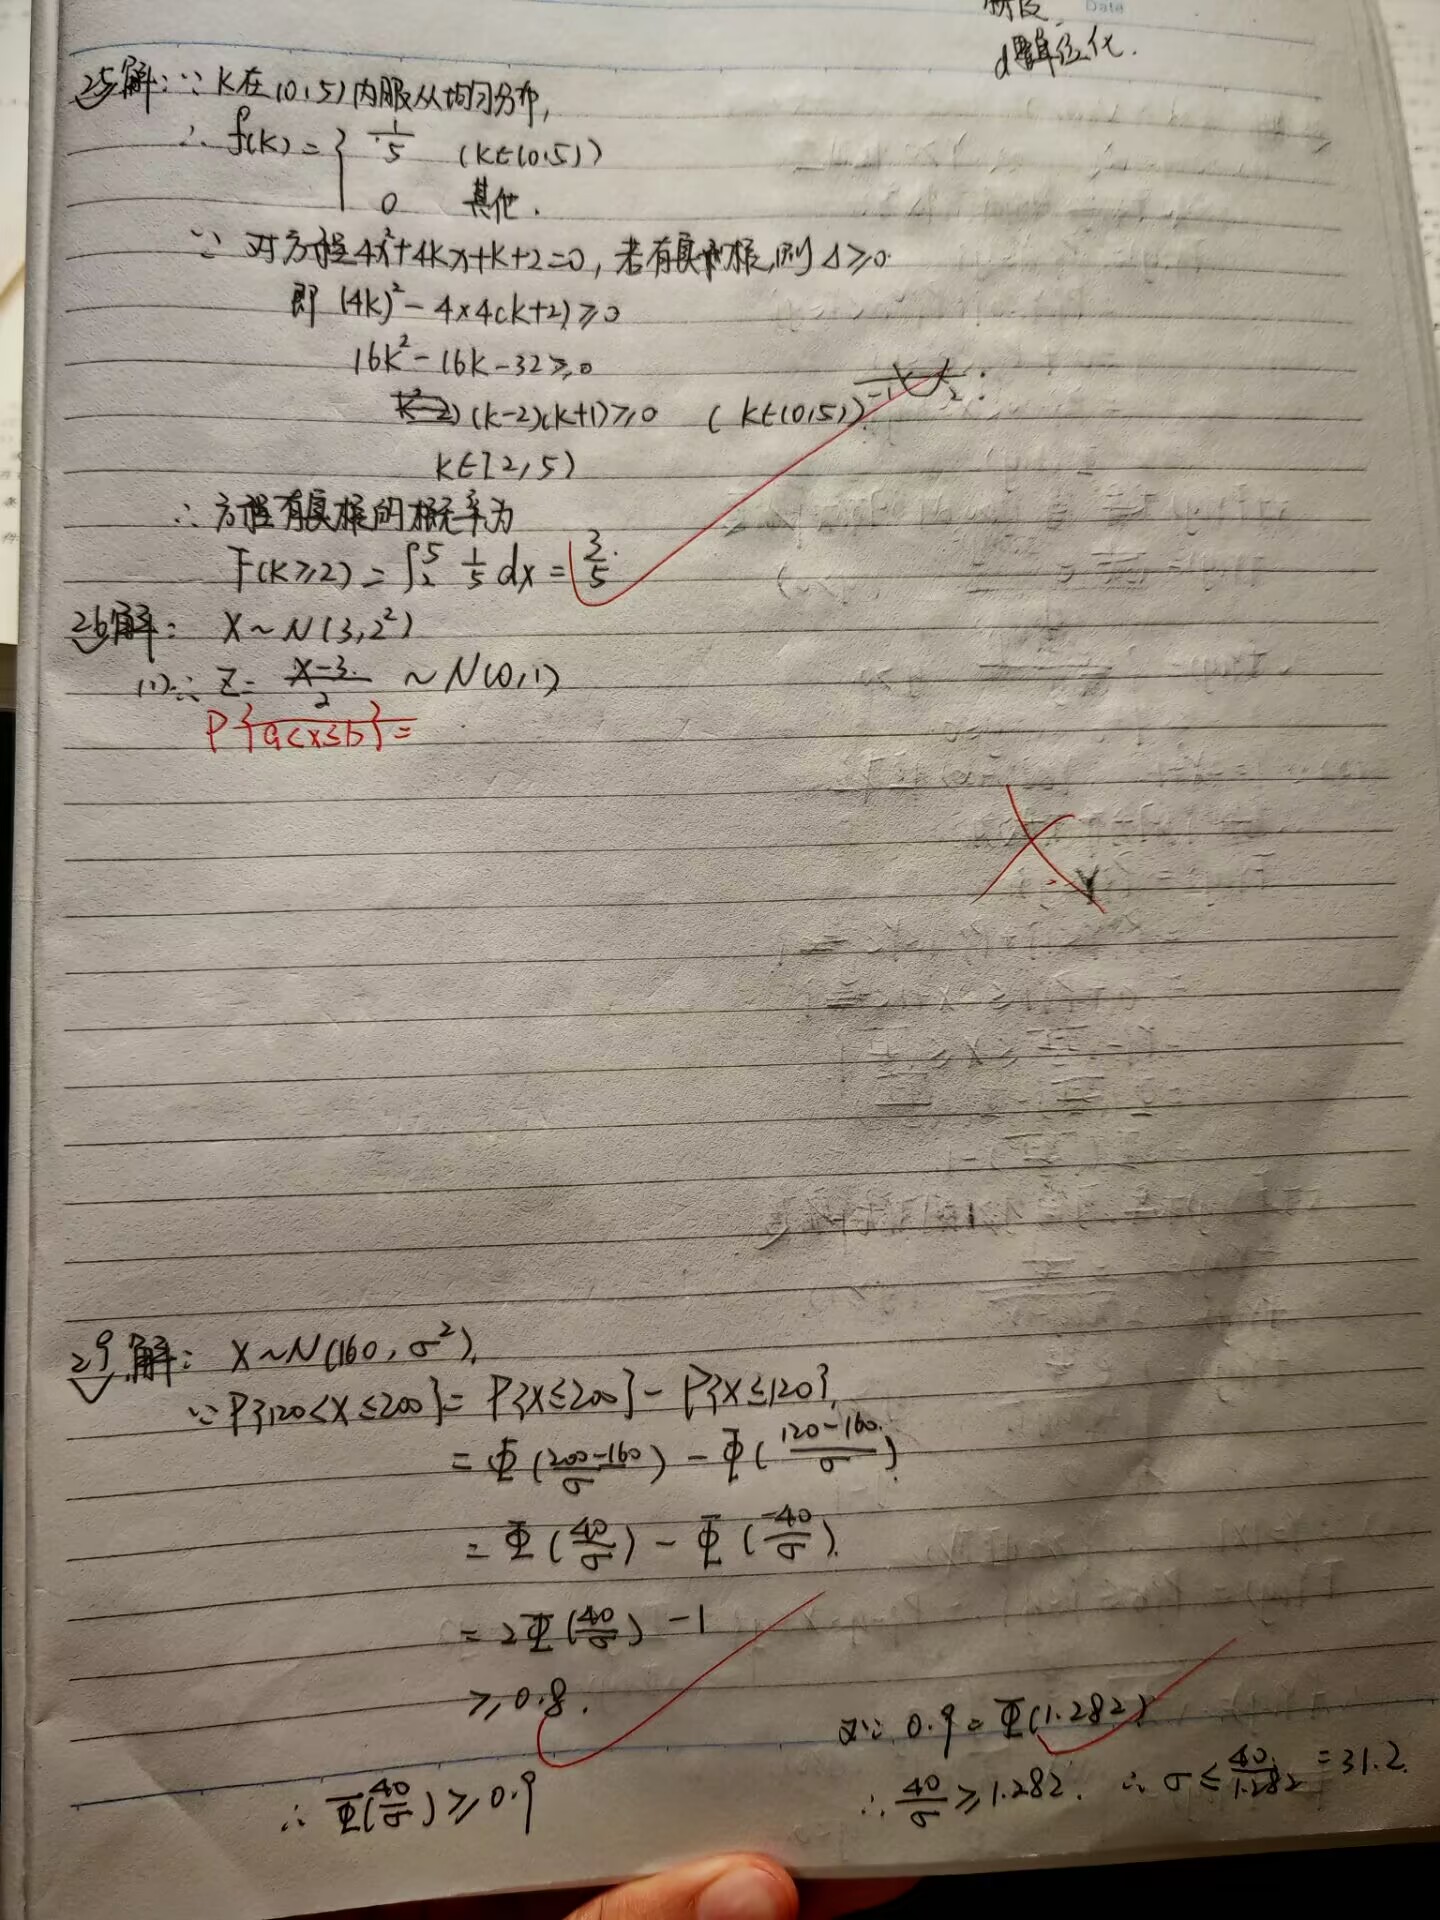 Date
d 单位化.
25解: ∵ K在(0,5)内服从均匀分布,
∴ f(K) = { 1/5 (K∈(0,5))
0 其他.
∵ 对方程4x²+4kx+k+2=0, 若有实根,则 Δ≥0.
即 (4k)² - 4×4(k+2)≥0
16k² - 16k - 32≥0
(k-2)(k+1)≥0 (k∈(0,5)) -1 2
k∈[2,5)
∴ 方程有实根的概率为
F(K≥2) = ∫₂⁵ 1/5 dx = 3/5.
26解: X~N(3,2²)
(1)∵ Z = (X-3)/2 ~ N(0,1)
P{a<x≤b}=
29.解: X~N(160, σ²).
∵ P{120<X≤200} = P{X≤200} - P{X≤120}
= Φ((200-160)/σ) - Φ((120-160)/σ)
= Φ(40/σ) - Φ(-40/σ).
= 2Φ(40/σ) - 1
≥0.8.
∴ Φ(40/σ)≥0.9
又∵ 0.9 = Φ(1.282)
∴ 40/σ ≥1.282. ∴ σ ≤ 40/1.282 = 31.2.